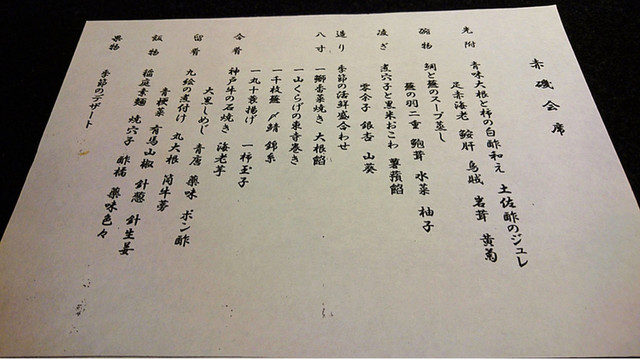 赤磯会席
先附 青味大根と柿の白酢和え 土佐酢のジュレ
足赤海老 鮟肝 烏賊 岩茸 黄菊
椀物 鯛と蕪のスープ蒸し
蕪の羽二重 鮑茸 水菜 柚子
凌ぎ 煮穴子と黒米おこわ 薯蕷餡
零余子 銀杏 山葵
造り 季節の活鮮盛合わせ
八寸 一鰤杏菜焼き 大根餡
一山くらげの東寺巻き
一千枚蕪 〆鯖 錦糸
一丸十蓑揚げ 一柿玉子
合肴 神戸牛の石焼き 海老芋
大黒しめじ 青唐 薬味 ポン酢
留肴 九絵の煮付け 丸大根 筒牛蒡
青梗菜 有馬山椒 針葱 針生姜
飯物 稲庭素麺 焼穴子 酢橘 薬味色々
果物 季節のデザート